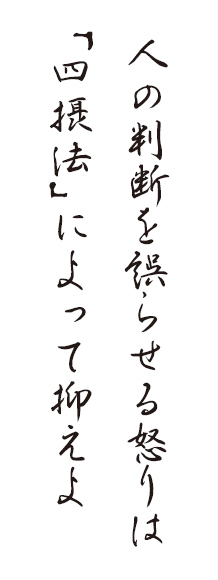 人の判断を誤らせる怒りは
『四摂法』によって抑えよ